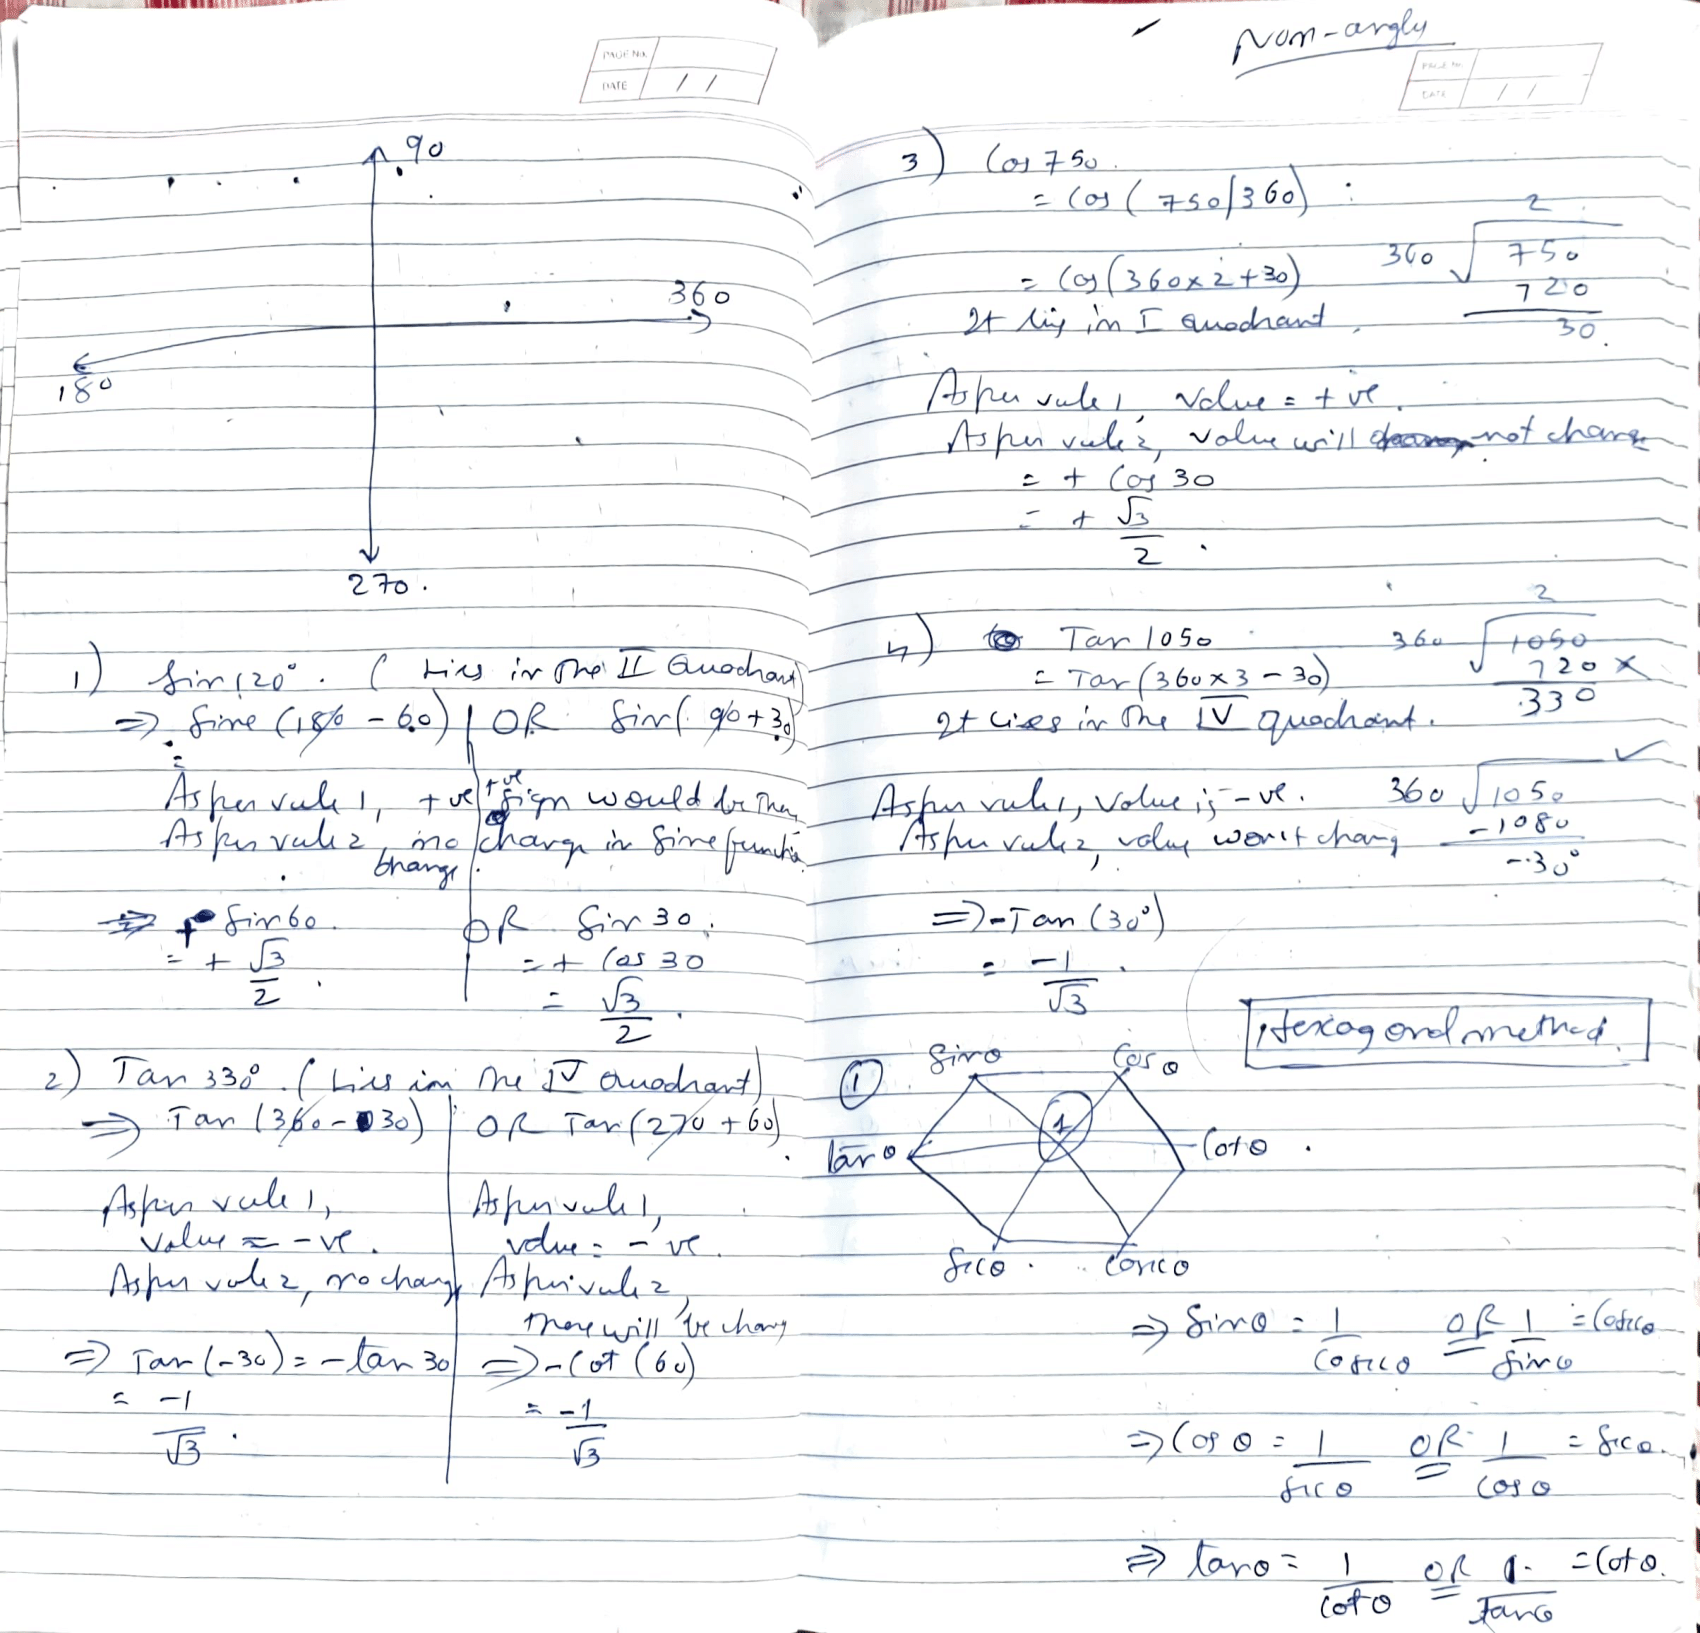 PAGE No.
DATE / /
90
360
180
270.
1) Sin 120°. ( Lies in the II Quadrant)
⇒ Sine (180 - 60) | OR Sin( 90+30)
=
As per rule 1, +ve | +ve sign would be then
As per rule 2, no change | change in Sine function
⇒ + Sin 60. OR Sin 30.
= + √3/2 . = + Cos 30
= √3/2 .
2) Tan 330°. ( Lies in the IV Quadrant)
⇒ Tan (360 - 30) | OR Tan (270 + 60)
As per rule 1, | As per rule 1,
value = -ve. | value = -ve.
As per rule 2, no change | As per rule 2,
there will be chang
⇒ Tan (-30) = - tan 30 | ⇒ - Cot (60)
= -1/√3 . = -1/√3
Non-angly
PAGE No.
DATE / /
3) Cos 750.
= Cos ( 750/360) :
= Cos (360 x 2 + 30)
It lies in I Quadrant
2
360 √ 750
720
30.
As per rule 1, value = +ve.
As per rule 2, value will not change
= + Cos 30
= + √3/2 .
4) Tan 1050
= Tan (360 x 3 - 30)
It Lies in the IV quadrant.
2
360 √ 1050
720 ×
330
As per rule 1, value is -ve.
As per rule 2, value won't chang
360 √ 1050 ✓
-1080
-30°
⇒ - Tan (30°)
= -1/√3 .
Hexagonal method.
① Sin θ Cos θ
1
tan θ Cot θ .
Sec θ . Cosec θ
⇒ Sin θ = 1/Cosec θ OR 1/Sin θ = Cosec θ
⇒ Cos θ = 1/Sec θ OR 1/Cos θ = Sec θ.
⇒ tan θ = 1/Cot θ OR 1/Tan θ = Cot θ.